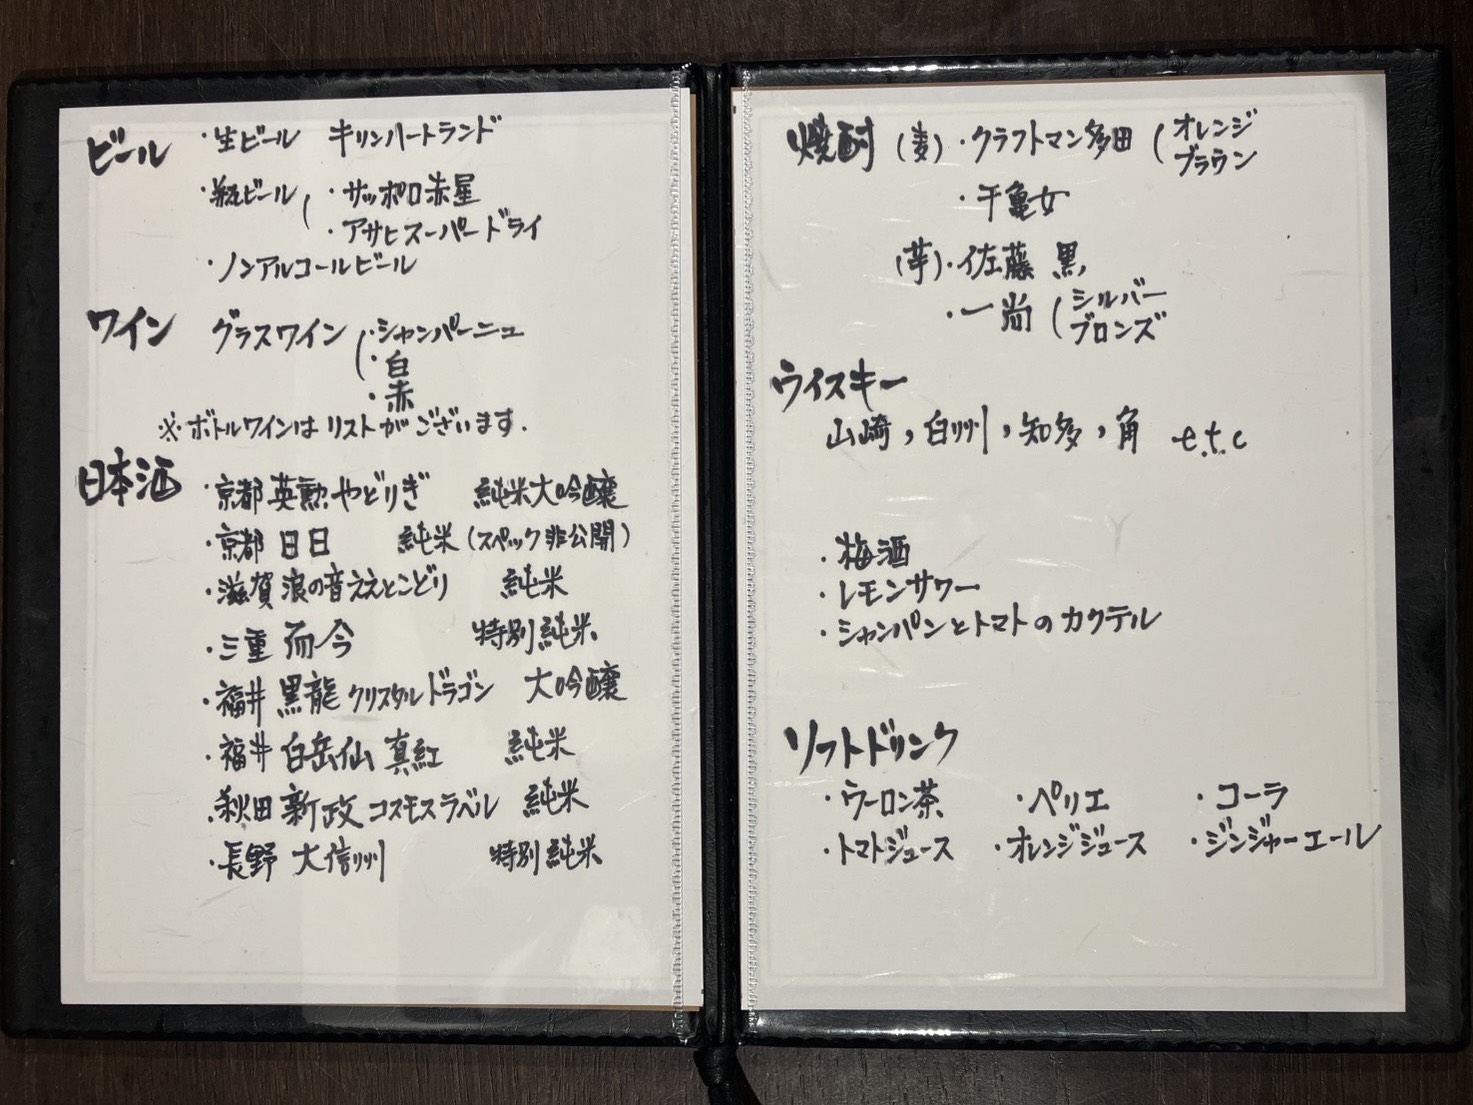 ビール ・生ビール キリンハートランド
・瓶ビール ( ・サッポロ赤星
・アサヒスーパードライ
・ノンアルコールビール
ワイン グラスワイン ( ・シャンパーニュ
・白
・赤
※ボトルワインはリストがございます.
日本酒 ・京都 英勲 やどりぎ 純米大吟醸
・京都 日日 純米(スペック非公開)
・滋賀 浪の音ええとこどり 純米
・三重 而今 特別純米
・福井 黒龍 クリスタルドラゴン 大吟醸
・福井 白岳仙 真紅 純米
・秋田 新政 コスモスラベル 純米
・長野 大信州 特別純米
焼酎 (麦)・クラフトマン多田 ( オレンジ
ブラウン
・千亀女
(芋)・佐藤 黒
・一尚 ( シルバー
ブロンズ
ウイスキー
山崎, 白州, 知多, 角 e.t.c
・梅酒
・レモンサワー
・シャンパンとトマトのカクテル
ソフトドリンク
・ウーロン茶 ・ペリエ ・コーラ
・トマトジュース ・オレンジジュース ・ジンジャーエール